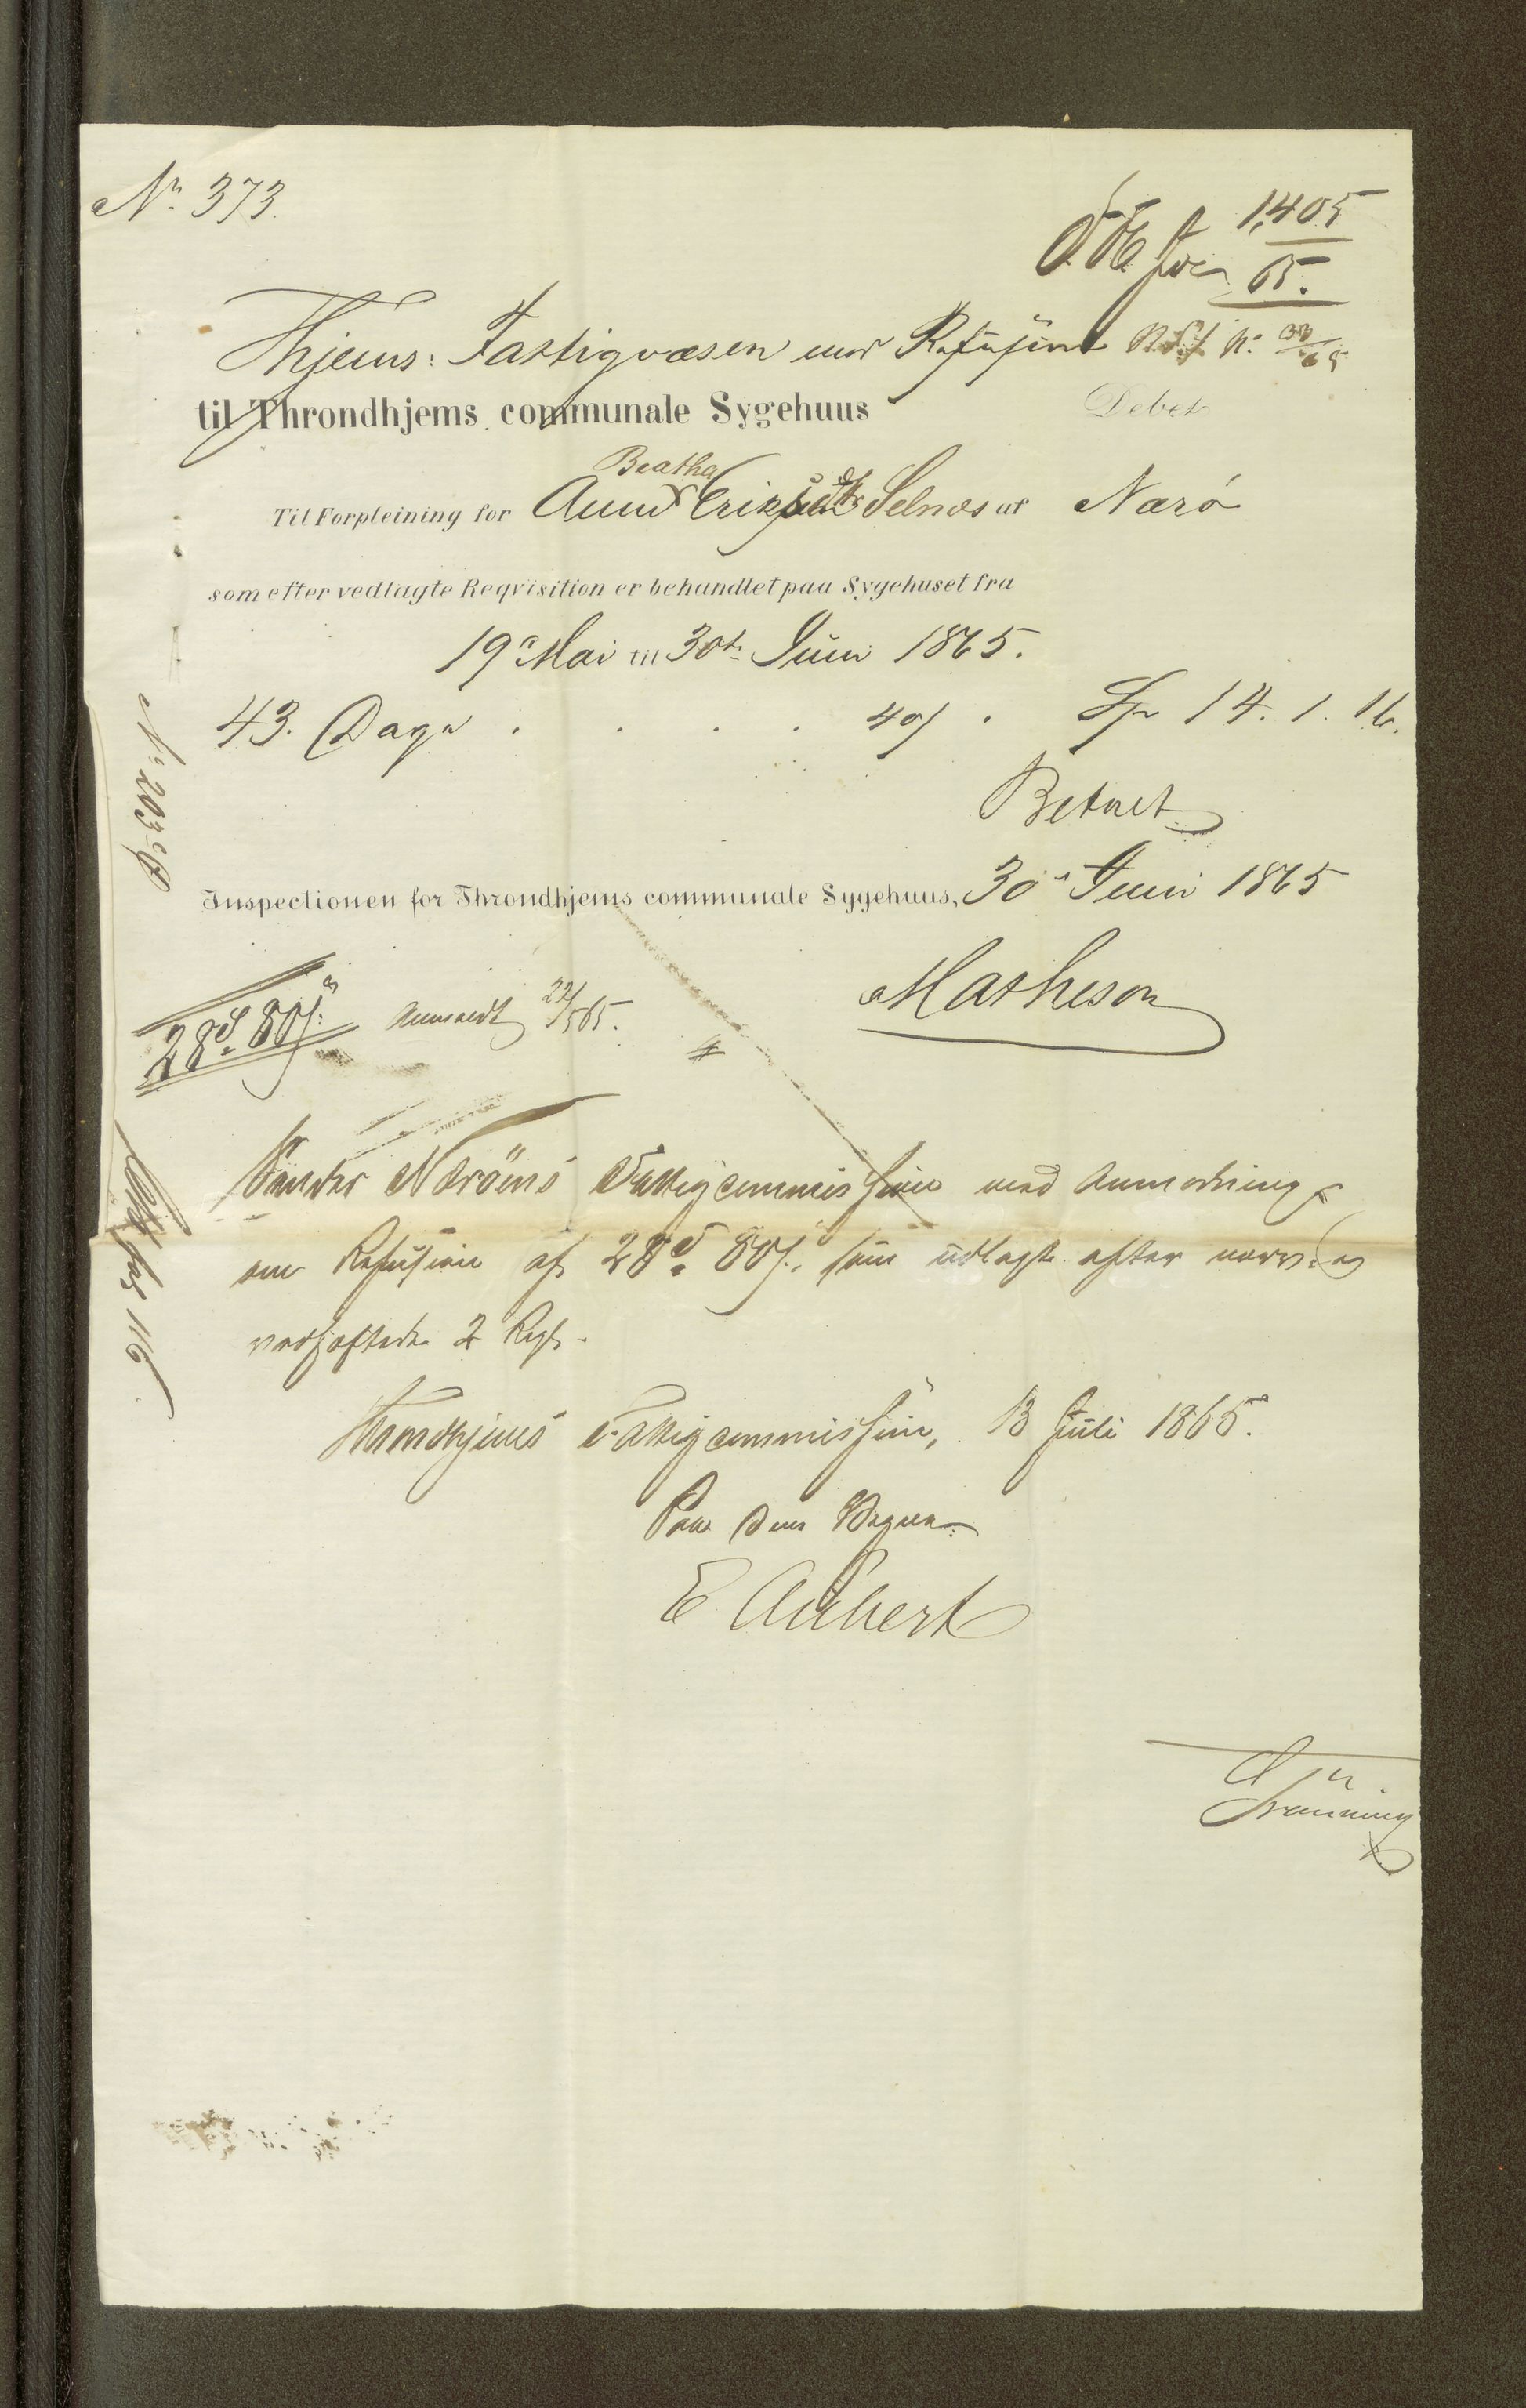 No. 373.
1,405
65.
Thjems: Fattigvæsen mod Refusion No. 33/65
til Throndhjems communale Sygehuus Debet
Beatha
Til Forpleining for Anne Eriksdtr Selnæs af Nærö
som efter vedlagte Reqvisition er behandlet paa Sygehuset fra
19de Mai til 30te Juni 1865.
43. Dage . . . . 40 s . Sp 14. 1. 16.
Betalt
Inspectionen for Throndhjems communale Sygehuus, 30te Juni 1865
Matheson
28d 80s. Anmeldt 22/5 65.
#
Sendes Næröens Fattigcommission med Anmodning
om Refusion af 28d 80s., som udlagt efter nærv. og
vedheftede 2 Regn.
Throndhjems Fattigcommission, 13 Juli 1865.
Paa Dens Vegne:
E Aubert
No. 203